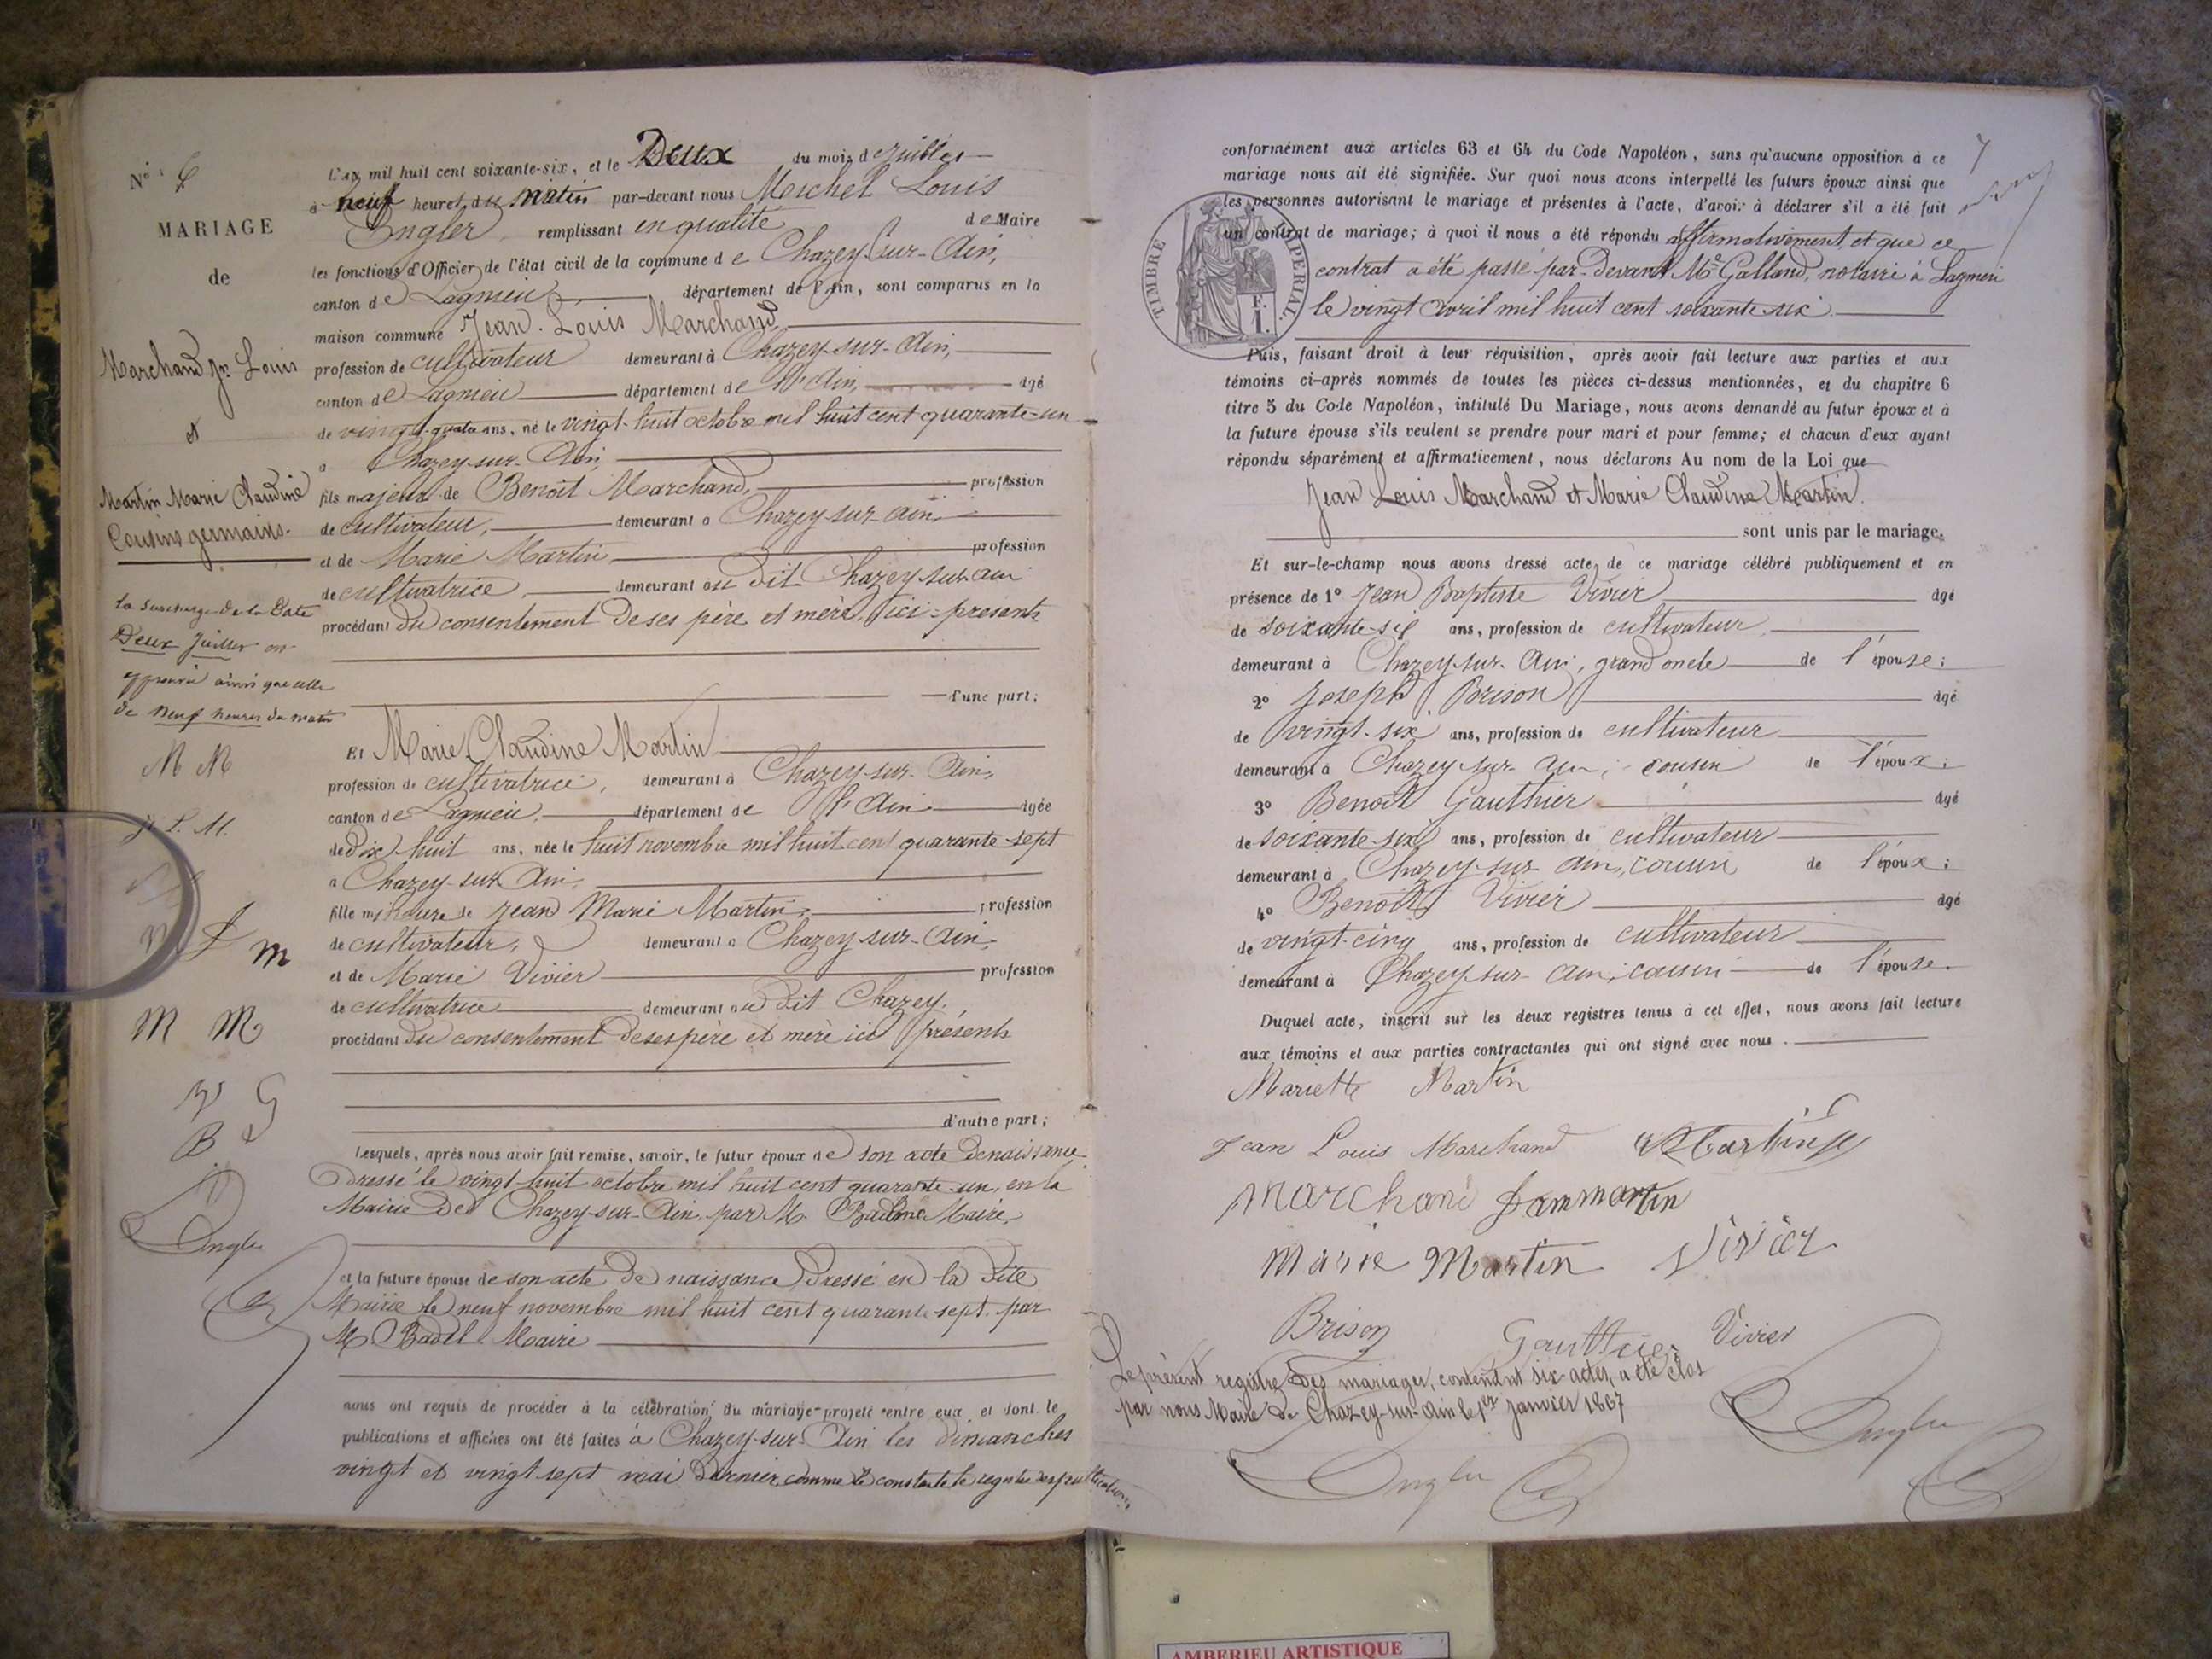 N° 6
MARIAGE
de
Marchand Jn Louis
et
Martin Marie Claudine
Cousins germains.
la surcharge de la Date
Deux Juillet
approuvé ainsi que celle
de neuf heures du matin
M M
J L M.
J m
M M
V G
B
Engler
L'an mil huit cent soixante-six, et le Deux du mois de Juillet
à neuf heures du matin par-devant nous Michel Louis
Engler remplissant en qualité de Maire
les fonctions d'Officier de l'état civil de la commune de Chazey-sur-Ain,
canton de Lagnieu département de l'Ain, sont comparus en la
maison commune Jean-Louis Marchand
profession de cultivateur demeurant à Chazey-sur-Ain,
canton de Lagnieu département de l'Ain, âgé
de vingt-quatre ans, né le vingt-huit octobre mil huit cent quarante-un
à Chazey-sur-Ain,
fils majeur de Benoît Marchand, profession
de cultivateur, demeurant à Chazey-sur-Ain
et de Marie Martin, profession
de cultivatrice, demeurant au dit Chazey-sur-ain
procédant du consentement de ses père et mère, ici présents
d'une part;
Et Marie Claudine Martin
profession de cultivatrice, demeurant à Chazey-sur-Ain,
canton de Lagnieu, département de l'Ain âgée
de dix-huit ans, née le huit novembre mil huit cent quarante-sept
à Chazey-sur-Ain,
fille mineure de Jean Marie Martin, profession
de cultivateur, demeurant à Chazey-sur-Ain,
et de Marie Vivier profession
de cultivatrice demeurant au dit Chazey.
procédant du consentement de ses père et mère ici présents
d'autre part;
Lesquels, après nous avoir fait remise, savoir, le futur époux de son acte de naissance
Dressé le vingt-huit octobre mil huit cent quarante-un, en la
Mairie de Chazey-sur-Ain par M. Maire,
et la future épouse de son acte de naissance Dressé en la dite
Mairie le neuf novembre mil huit cent quarante sept par
M. Badel Maire
nous ont requis de procéder à la célébration du mariage projeté entre eux et dont le
publications et affiches ont été faites à Chazey-sur-Ain les dimanches
vingt et vingt sept mai dernier, comme le constate le registre des publications,
7
conformément aux articles 63 et 64 du Code Napoléon, sans qu'aucune opposition à ce
mariage nous ait été signifiée. Sur quoi nous avons interpellé les futurs époux ainsi que
les personnes autorisant le mariage et présentes à l'acte, d'avoir à déclarer s'il a été fait
un contrat de mariage; à quoi il nous a été répondu affirmativement, et que ce
contrat a été passé par-devant Me Galland, notaire à Lagnieu
le vingt avril mil huit cent soixante-six.
TIMBRE IMPERIAL.
F.
1.
Puis, faisant droit à leur réquisition, après avoir fait lecture aux parties et aux
témoins ci-après nommés de toutes les pièces ci-dessus mentionnées, et du chapitre 6
titre 5 du Code Napoléon, intitulé Du Mariage, nous avons demandé au futur époux et à
la future épouse s'ils veulent se prendre pour mari et pour femme; et chacun d'eux ayant
répondu séparément et affirmativement, nous déclarons Au nom de la Loi que
Jean Louis Marchand et Marie Claudine Martin.
sont unis par le mariage.
Et sur-le-champ nous avons dressé acte de ce mariage célébré publiquement et en
présence de 1° Jean Baptiste Vivier âgé
de soixante-six ans, profession de cultivateur
demeurant à Chazey-sur-Ain, grand oncle de l'épouse;
2° Joseph Brison âgé
de vingt-six ans, profession de cultivateur
demeurant à Chazey-sur-Ain; cousin de l'époux;
3° Benoît Gauthier âgé
de soixante-six ans, profession de cultivateur
demeurant à Chazey-sur-Ain, cousin de l'époux;
4° Benoît Vivier âgé
de vingt-cinq ans, profession de cultivateur
demeurant à Chazey-sur-Ain, cousin de l'épouse.
Duquel acte, inscrit sur les deux registres tenus à cet effet, nous avons fait lecture
aux témoins et aux parties contractantes qui ont signé avec nous.
Mariette Martin
Jean Louis Marchand Martin
Marchand Jammartin
Marie Martin Vivier
Brison Gauthier Vivier
Le présent registre des mariages, contenant six actes, a été clos
par nous Maire de Chazey-sur-Ain le 1er Janvier 1867
Engler
Engler
AMBERIEU ARTISTIQUE